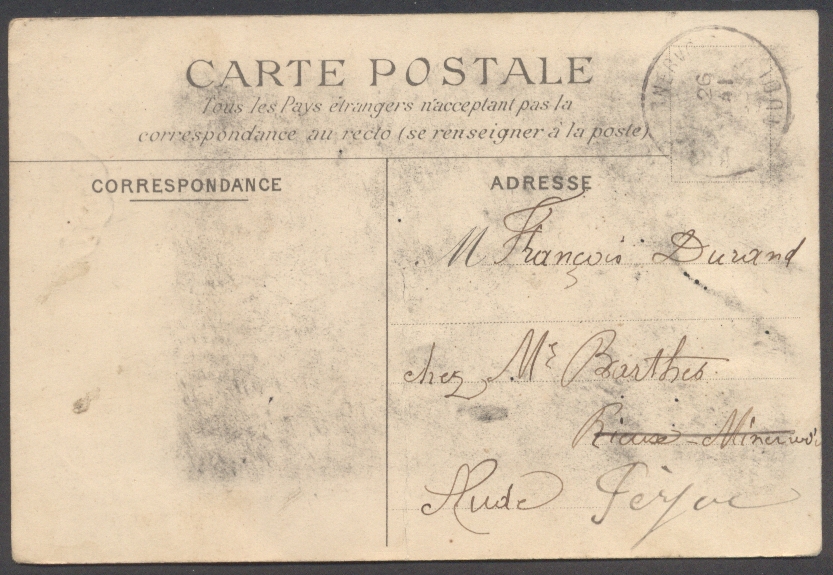 CARTE POSTALE
Tous les Pays étrangers n'acceptent pas la
correspondance au recto (se renseigner à la poste)
CORRESPONDANCE
ADRESSE
M François Durand
chez Mr Barthes
Rieux-Minervois
Aude
26
11